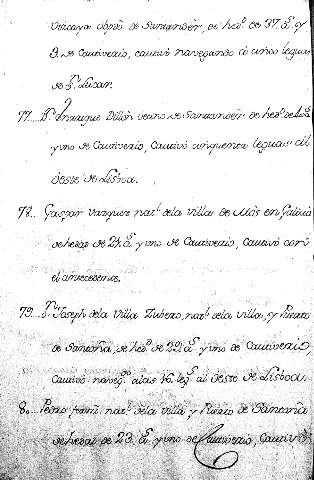 Vizcaya obpdo de Santander, de hedd. de 37. as. y
3. de Cautiverio, cautivó navegando a unas leguas
de Sn. Lucar.
77... Dn. Enrique Dillon vecino de Santander de hedd. de
y uno de Cautiverio, Cautivó cinquenta leguas al
deste de Lisboa.
78... Gaspar Vazquez natl. de la villa de Mos en Galicia
de hedad de 24. as. y uno de Cautiverio, Cautivó con
el antecedente.
79... Dn. Joseph de la Villa Zubero, natl. de la villa, y Puerto
de Santoña, de hedd. de 32. as. y uno de Cautiverio,
Cautivó navegdo. a las 16. legs. al deste de Lisboa.
80.. Pedro natl. de la villa y Puerto de Santoña
de hedad de 23. as. y uno de Cautiverio, Cautivó